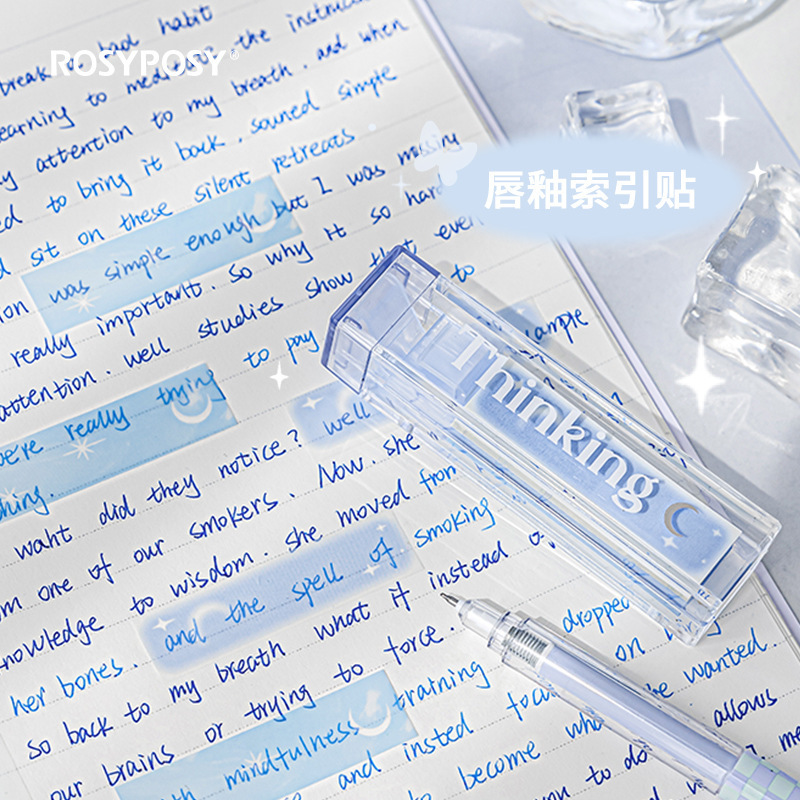 ROSYPOSY®
break a bad habit
learning to meditate. the instruction
my attention to my breath. and when
to bring it back. souned simple
sit on these silent retreats
was simple enough but I was missing
really important. So why it so hard
attention. well studies show that even
we're really trying to pay to
example
well
waht did they notice? she
one of our smokers. Now. she
knowledge to wisdom. she moved from
her bones. and the spell of smoking
So back to my breath what it instead of
our brains or trying to force. dropped
mindfulness training on
and insted wanted.
to become allows
you to do
唇釉索引贴
Thinking